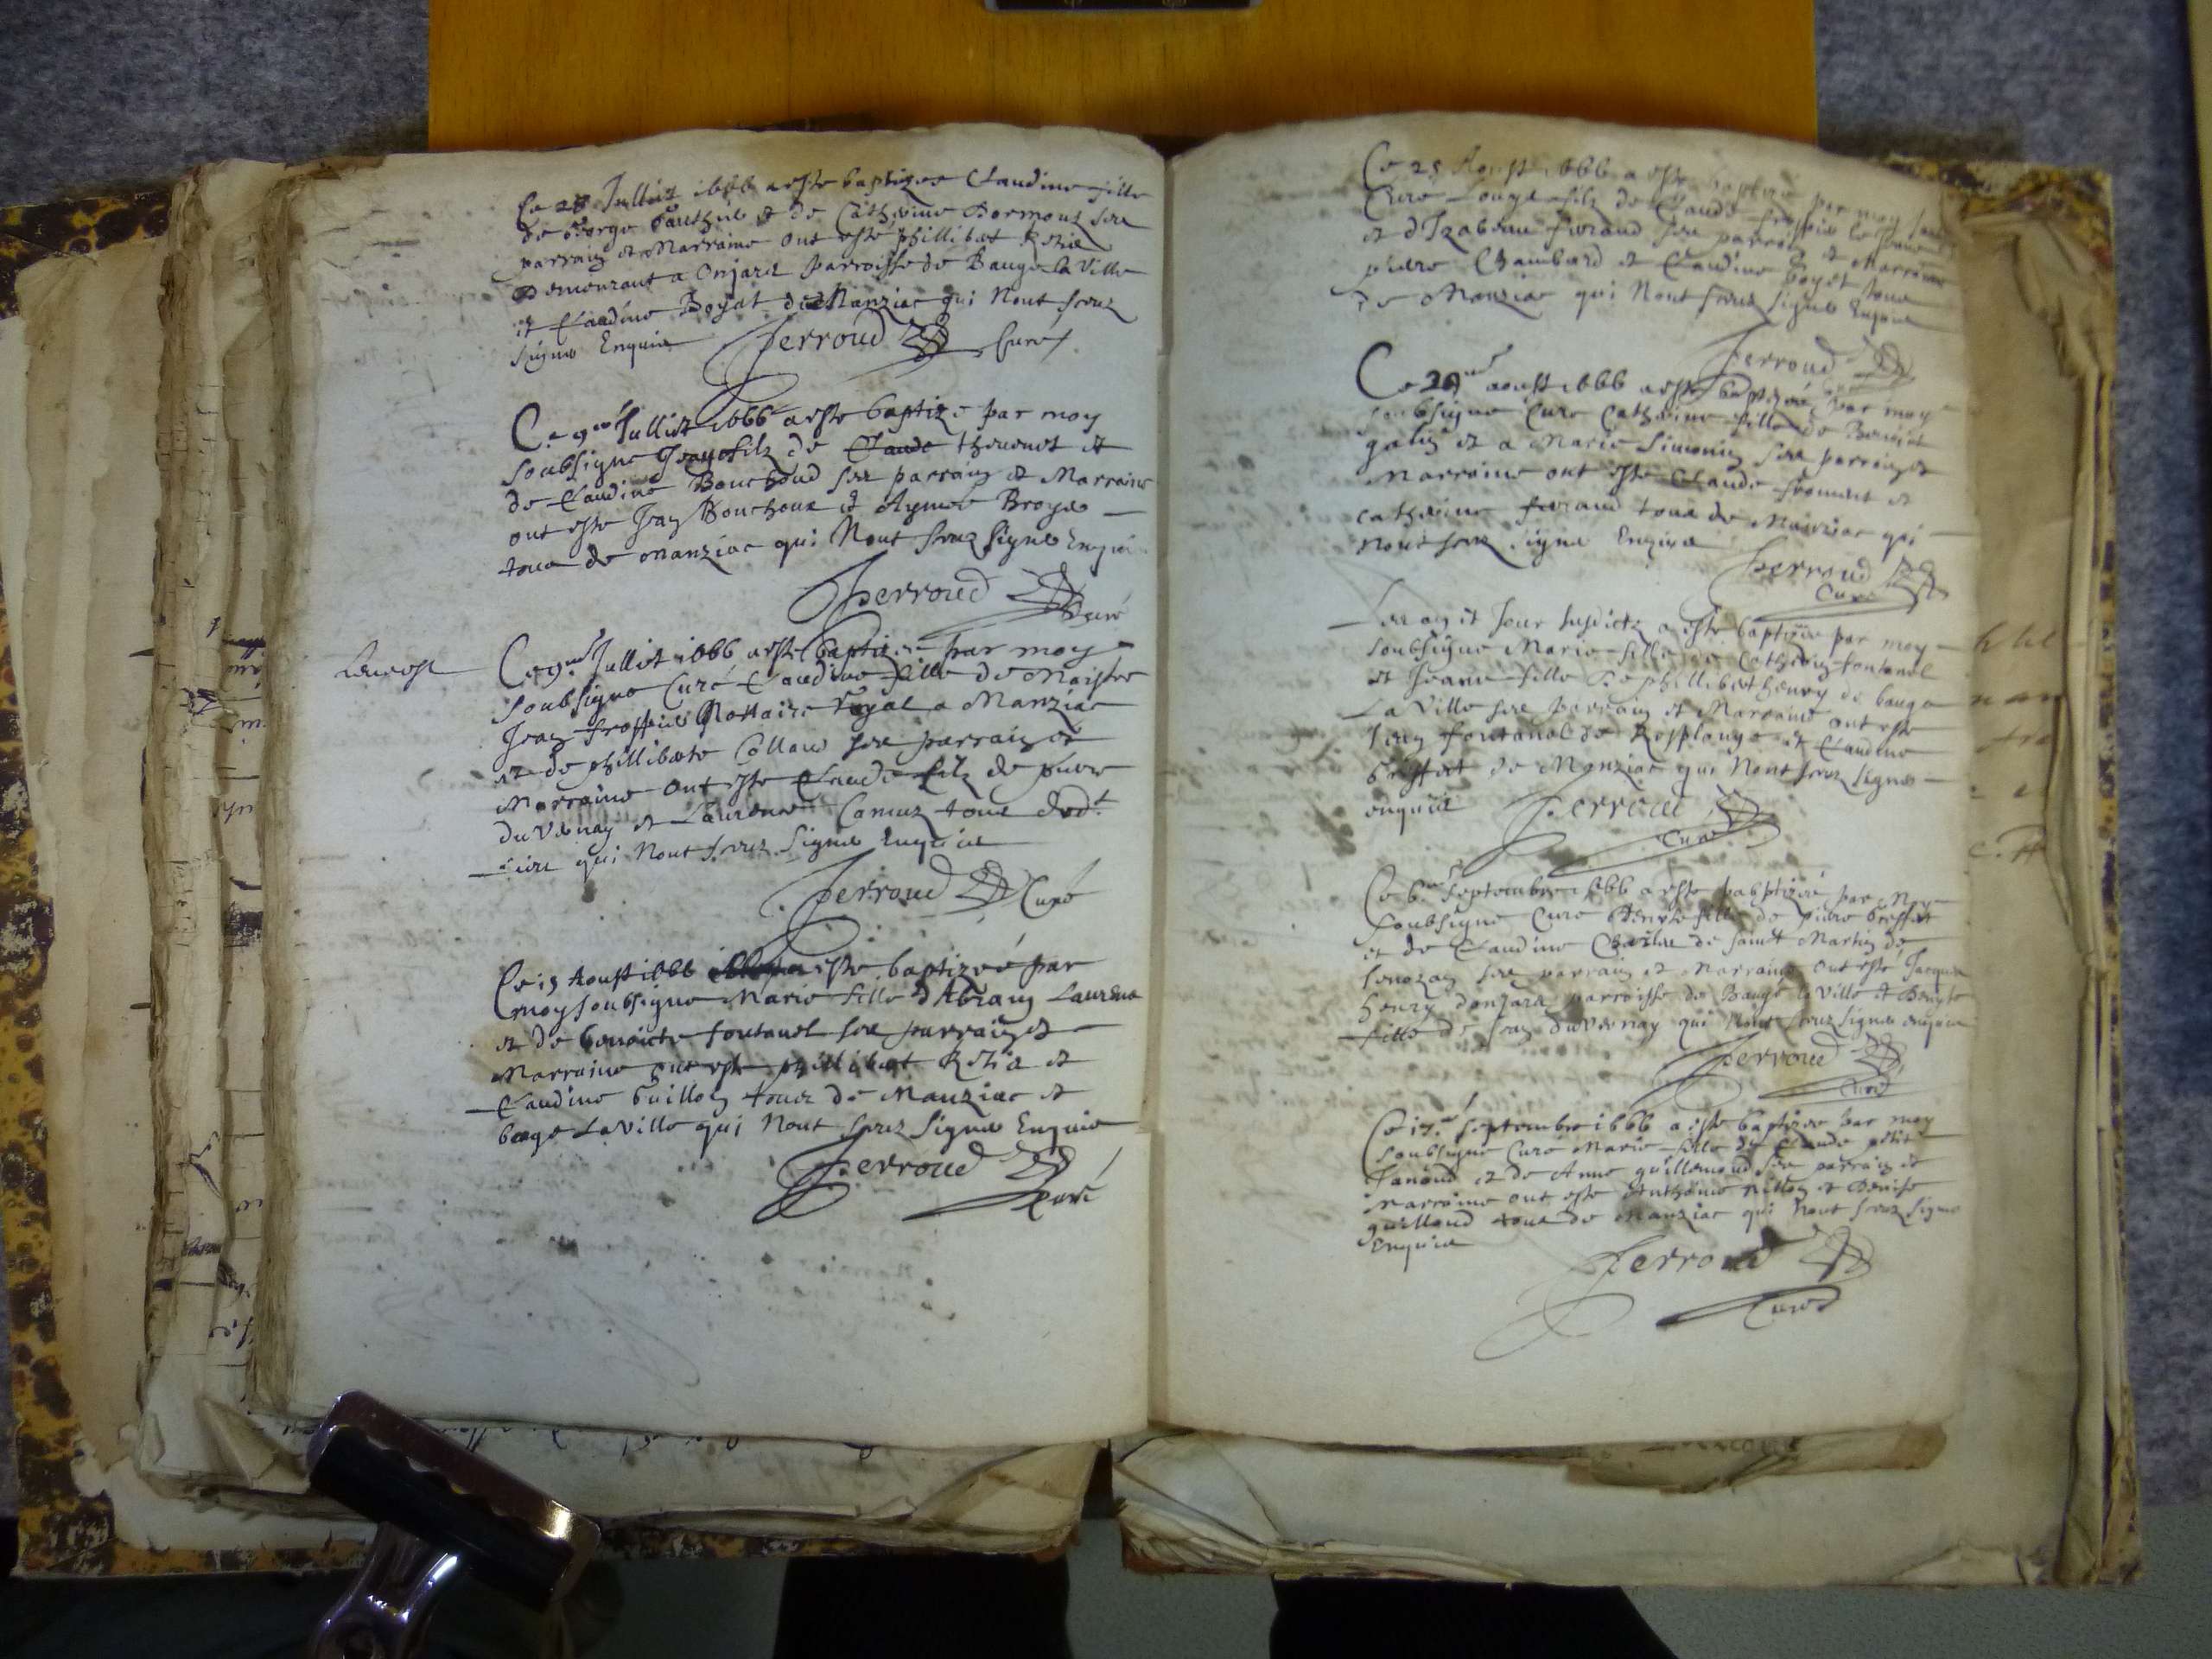 Ce 28 Julliet 1666 a este baptizee Claudine fille
de George Gauthie et de Catherine Dormoux ses
parrain et Marraine ont este phillibert Retia
Demeurant a Onjard parroisse de Bauge la Ville
et Claudine Boyat de Manziac qui Nont sceuz
signe Enquis Perroud Curé
Ce 9me Julliet 1666 a este baptize par moy
soubsigne Jean filz de Claude thevenet et
de Claudine Bouchoud ses parrain et Marraine
ont este Jean Bouchoux et Aymee Broye
tous de Manziac qui Nont sceuz signe Enquis
Perroud
Curé
Ce 9me Julliet 1666 a este baptizee par moy
soubsigne Curé Claudine fille de Maistre
Jean froppie Nottaire Royal a Manziac
et de philliberte Collau ses parrain et
Marraine ont este Claude filz de piere
Duvernay et Laurence Camuz tous dud.t
lieu qui Nont sceuz signe Enquis
Perroud Curé
Ce 15 Aoust 1666 a este baptizeé par
moy soubsigne Marie fille d Abram Laurens
et de benoiste fontanel ses parrain et
Marraine ont este phillibert Retia et
Claudine Guillon tous de Manziac et
bage La Ville qui Nont sceuz signe Enquis
Perroud
Curé
Ce 25 Aoust 1666 a este baptize par moy
Cure Louys filz de Claude froppie le Jeune
et d Izabeau feraud ses parrain et Marraine
piere Chambard et Claudine boyet tous
de Manziac qui Nont sceuz signe Enquis
Perroud
Ce 29me aoust 1666 a este baptizeé par moy
soubsigne Cure Catherine fille de Benoist
galis et a Marie Simonin ses parrain et
Marraine ont este Claude froment et
catherine feraud tous de Manziac qui
nont sceuz signe Enquis
Perroud
Curé
Les an et Jour susdictz a este baptizée par moy
soubsigne Marie fille de Catherin fontanel
et Jeanne fille de phillibert henry de bauge
La Ville ses parrain et Marraine ont este
Jean fontanel de Replonge et Claudine
de Manziac qui Nont sceuz signe
enquis Perroud
Curé
Ce 6me septembre 1666 a este babptizeé par Moy
soubsigne Cure Benoite fille de piere
et de Claudine de sainct Martin de
senozan ses parrain et Marraine ont esté Jacque
henry donjard parroisse de Baugé la Ville et Benoyte
fille de Jean duvernay qui Nont sceuz signe enquis
Perroud
Curé
Ce 17.e septembre 1666 a este baptizee par moy
soubsigne Curé Marie fille de Claude petit
Janoud et de Anne guillemoud ses parrain et
Marraine ont este Anthoine et Denise
guilloud tous de Manziac qui Nont sceuz signe
Enquis
Perroud
Curé